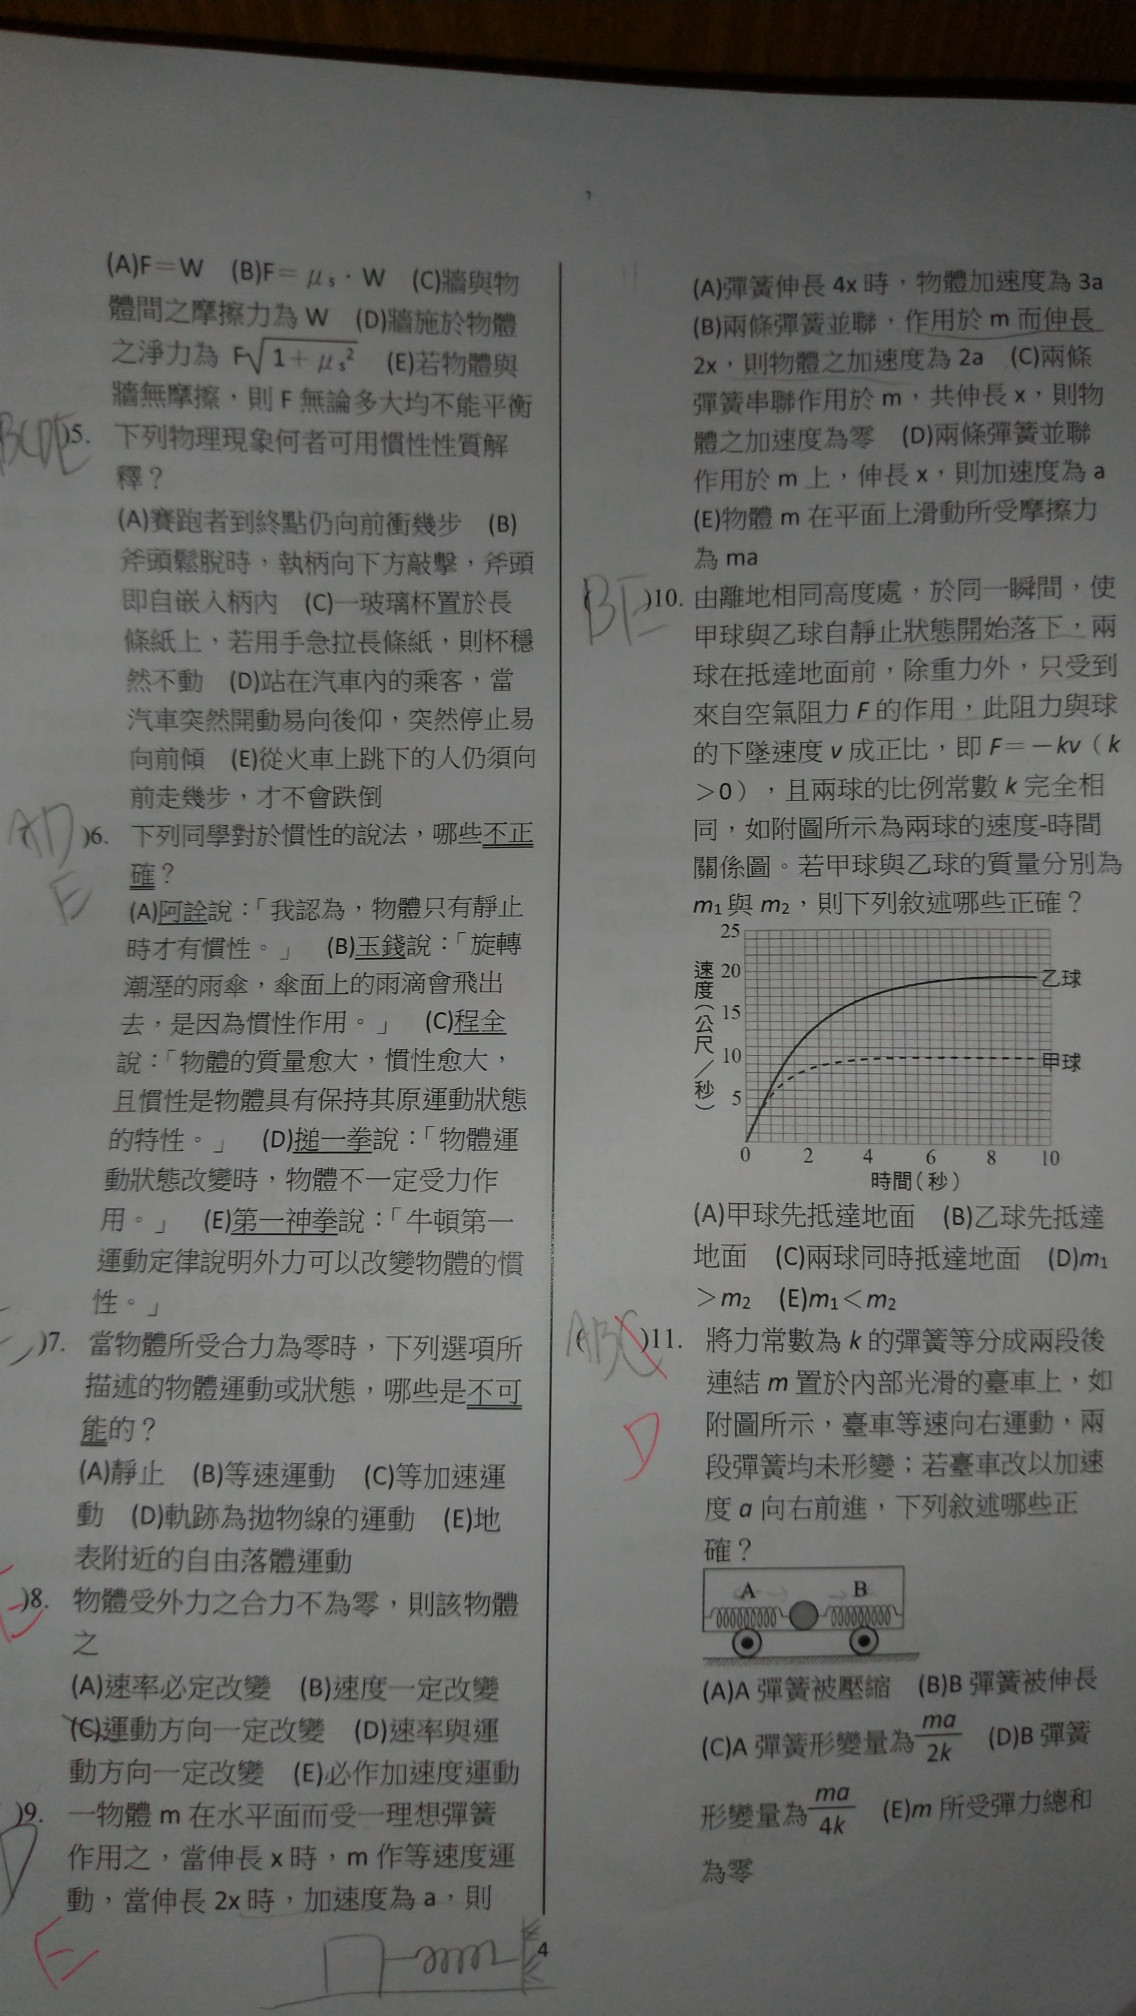 (A)F=W (B)F= μs · W (C)牆與物
體間之摩擦力為 W (D)牆施於物體
之淨力為 F√1+ μs² (E)若物體與
牆無摩擦,則 F 無論多大均不能平衡
BCDE)5. 下列物理現象何者可用慣性性質解
釋?
(A)賽跑者到終點仍向前衝幾步 (B)
斧頭鬆脫時,執柄向下方敲擊,斧頭
即自嵌入柄內 (C)一玻璃杯置於長
條紙上,若用手急拉長條紙,則杯穩
然不動 (D)站在汽車內的乘客,當
汽車突然開動易向後仰,突然停止易
向前傾 (E)從火車上跳下的人仍須向
前走幾步,才不會跌倒
AD)6. 下列同學對於慣性的說法,哪些不正
E
確?
(A)阿詮說:「我認為,物體只有靜止
時才有慣性。」 (B)玉錢說:「旋轉
潮溼的雨傘,傘面上的雨滴會飛出
去,是因為慣性作用。」 (C)程全
說:「物體的質量愈大,慣性愈大,
且慣性是物體具有保持其原運動狀態
的特性。」 (D)搥一拳說:「物體運
動狀態改變時,物體不一定受力作
用。」 (E)第一神拳說:「牛頓第一
運動定律說明外力可以改變物體的慣
性。」
)7. 當物體所受合力為零時,下列選項所
描述的物體運動或狀態,哪些是不可
能的?
(A)靜止 (B)等速運動 (C)等加速運
動 (D)軌跡為拋物線的運動 (E)地
表附近的自由落體運動
)8. 物體受外力之合力不為零,則該物體
之
(A)速率必定改變 (B)速度一定改變
(C)運動方向一定改變 (D)速率與運
動方向一定改變 (E)必作加速度運動
)9. 一物體 m 在水平面而受一理想彈簧
作用之,當伸長 x 時,m 作等速度運
D
動,當伸長 2x 時,加速度為 a,則
E
(A)彈簧伸長 4x 時,物體加速度為 3a
(B)兩條彈簧並聯,作用於 m 而伸長
2x,則物體之加速度為 2a (C)兩條
彈簧串聯作用於 m,共伸長 x,則物
體之加速度為零 (D)兩條彈簧並聯
作用於 m 上,伸長 x,則加速度為 a
(E)物體 m 在平面上滑動所受摩擦力
為 ma
(BE)10. 由離地相同高度處,於同一瞬間,使
甲球與乙球自靜止狀態開始落下,兩
球在抵達地面前,除重力外,只受到
來自空氣阻力 F 的作用,此阻力與球
的下墜速度 v 成正比,即 F=-kv(k
>0),且兩球的比例常數 k 完全相
同,如附圖所示為兩球的速度-時間
關係圖。若甲球與乙球的質量分別為
m1 與 m2,則下列敘述哪些正確?
25
20
15
10
5
0 2 4 6 8 10
速度(公尺/秒)
乙球
甲球
時間(秒)
(A)甲球先抵達地面 (B)乙球先抵達
地面 (C)兩球同時抵達地面 (D)m1
>m2 (E)m1<m2
(ABC)11. 將力常數為 k 的彈簧等分成兩段後
D
連結 m 置於內部光滑的臺車上,如
附圖所示,臺車等速向右運動,兩
段彈簧均未形變;若臺車改以加速
度 a 向右前進,下列敘述哪些正
確?
A B
(A)A 彈簧被壓縮 (B)B 彈簧被伸長
(C)A 彈簧形變量為 ma/2k (D)B 彈簧
形變量為 ma/4k (E)m 所受彈力總和
為零
4